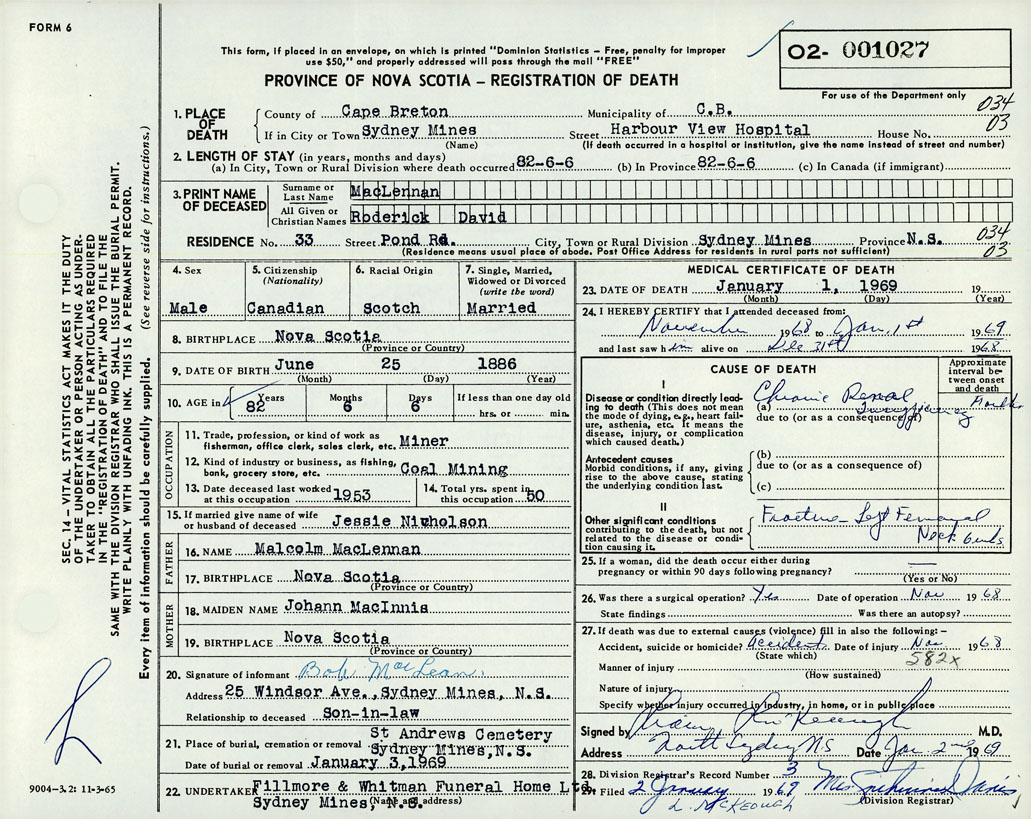 FORM 6
This form, if placed in an envelope, on which is printed "Dominion Statistics – Free, penalty for improper
use $50," and properly addressed will pass through the mail "FREE"
PROVINCE OF NOVA SCOTIA – REGISTRATION OF DEATH
02- 001027
For use of the Department only
034
03
1. PLACE OF DEATH
County of Cape Breton Municipality of C.B.
If in City or Town Sydney Mines Street Harbour View Hospital House No.
(Name) (If death occurred in a hospital or institution, give the name instead of street and number)
2. LENGTH OF STAY (in years, months and days)
(a) In City, Town or Rural Division where death occurred 82-6-6 (b) In Province 82-6-6 (c) In Canada (if immigrant)
3. PRINT NAME OF DECEASED
Surname or Last Name MacLennan
All Given or Christian Names Roderick David
RESIDENCE No. 33 Street Pond Rd. City, Town or Rural Division Sydney Mines Province N.S.
(Residence means usual place of abode. Post Office Address for residents in rural parts not sufficient)
034
03
4. Sex
Male
5. Citizenship
(Nationality)
Canadian
6. Racial Origin
Scotch
7. Single, Married,
Widowed or Divorced
(write the word)
Married
8. BIRTHPLACE Nova Scotia
(Province or Country)
9. DATE OF BIRTH June 25 1886
(Month) (Day) (Year)
10. AGE in Years Months Days If less than one day old
82 6 6 hrs. or min.
OCCUPATION
11. Trade, profession, or kind of work as
fisherman, office clerk, sales clerk, etc. Miner
12. Kind of industry or business, as fishing,
bank, grocery store, etc. Coal Mining
13. Date deceased last worked
at this occupation 1953
14. Total yrs. spent in
this occupation 50
15. If married give name of wife
or husband of deceased Jessie Nicholson
FATHER
16. NAME Malcolm MacLennan
17. BIRTHPLACE Nova Scotia
(Province or Country)
MOTHER
18. MAIDEN NAME Johann MacInnis
19. BIRTHPLACE Nova Scotia
(Province or Country)
20. Signature of informant Bob MacLean
Address 25 Windsor Ave., Sydney Mines, N.S.
Relationship to deceased Son-in-law
21. Place of burial, cremation or removal St Andrews Cemetery
Sydney Mines, N.S.
Date of burial or removal January 3, 1969
22. UNDERTAKER Fillmore & Whitman Funeral Home Ltd.
Sydney Mines, N.S.
(Name and address)
MEDICAL CERTIFICATE OF DEATH
23. DATE OF DEATH January 1, 1969 19
(Month) (Day) (Year)
24. I HEREBY CERTIFY that I attended deceased from:
November 1968 to Jan. 1st 1969
and last saw him alive on Dec 31st 1968
CAUSE OF DEATH
Approximate
interval be-
tween onset
and death
I
Disease or condition directly lead-
ing to death (This does not mean
the mode of dying, e.g., heart fail-
ure, asthenia, etc. It means the
disease, injury, or complication
which caused death.)
(a) Chronic Renal
Insufficiency
Months
due to (or as a consequence of)
Antecedent causes
Morbid conditions, if any, giving
rise to the above cause, stating
the underlying condition last.
(b)
due to (or as a consequence of)
(c)
II
Other significant conditions
contributing to the death, but not
related to the disease or condi-
tion causing it.
Fracture – Left Femoral
Neck
25. If a woman, did the death occur either during
pregnancy or within 90 days following pregnancy?
(Yes or No)
26. Was there a surgical operation? Yes Date of operation Nov 1968
State findings Was there an autopsy?
27. If death was due to external causes (violence) fill in also the following: –
Accident, suicide or homicide? Accident Date of injury Nov 1968
(State which) 582x
Manner of injury
(How sustained)
Nature of injury
Specify whether injury occurred in industry, in home, or in public place
Signed by M.D.
Address North Sydney NS Date Jan 2nd 1969
28. Division Registrar's Record Number 3
29. Filed 2 January 1969 Mrs Davis
(Division Registrar)
L. McKeough
SEC. 14 – VITAL STATISTICS ACT MAKES IT THE DUTY
OF THE UNDERTAKER OR PERSON ACTING AS UNDER-
TAKER TO OBTAIN ALL THE PARTICULARS REQUIRED
IN THE "REGISTRATION OF DEATH" AND TO FILE THE
SAME WITH THE DIVISION REGISTRAR WHO SHALL ISSUE THE BURIAL PERMIT.
WRITE PLAINLY WITH UNFADING INK. THIS IS A PERMANENT RECORD.
Every item of information should be carefully supplied. (See reverse side for instructions.)
9004-3.2: 11-3-65